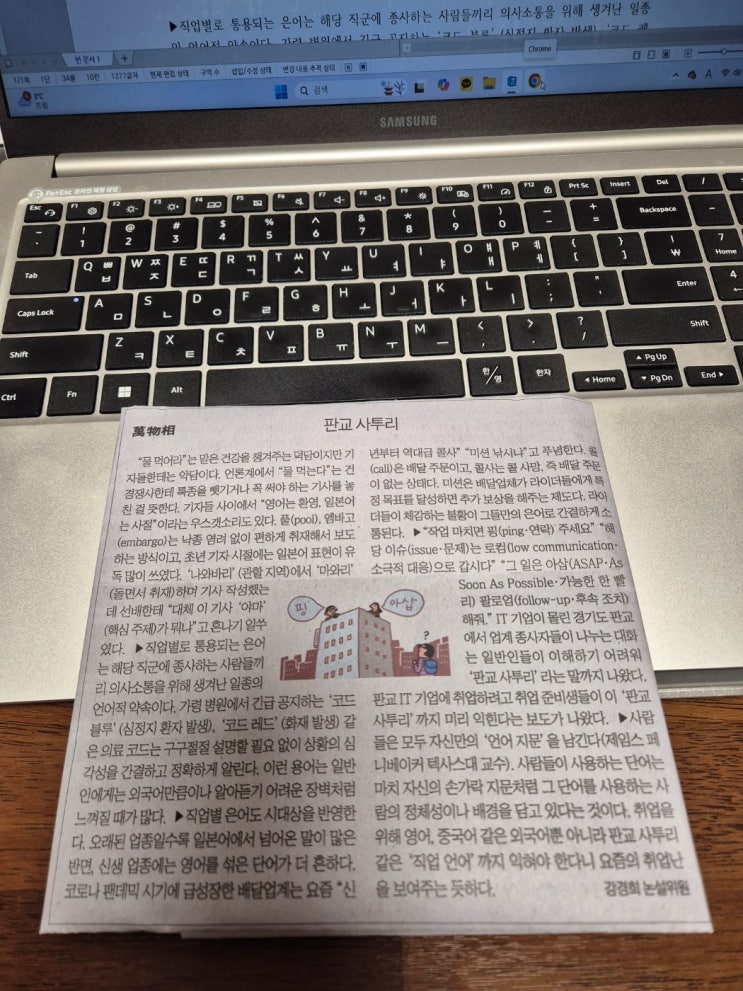 ▶직업별로 통용되는 은어는 해당 직군에 종사하는 사람들끼리 의사소통을 위해 생겨난 일종
의 언어적 약속이다. 가령 병원에서 긴급 공지하는 '코드 블루' (심정지 환자 발생), '코드 레
빈 문서 1
Chrome
1/1쪽 1단 34줄 10칸 1277글자 현재 편집 상태 구역 수 삽입/수정 상태 변경 내용 추적 상태
3°C
흐림
검색
A
SAMSUNG
Fn+Esc 온라인 매칭 상담
Esc F1 F2 F3 F4 F5 F6 F7 F8 F9 F10 F11 F12 Prt Sc Insert Del /
~ ` ! 1 @ 2 # 3 $ 4 % 5 ^ 6 & 7 * 8 ( 9 ) 0 _ - + = Backspace -
Tab Q ㅃ ㅂ W ㅉ ㅈ E ㄸ ㄷ R ㄲ ㄱ T ㅆ ㅅ Y ㅛ U ㅕ I ㅑ O ㅒ ㅐ P ㅖ ㅔ { [ } ] | ₩ 7 Home
Caps Lock A ㅁ S ㄴ D ㅇ F ㄹ G ㅎ H ㅗ J ㅓ K ㅏ L ㅣ : ; " ' Enter 4
Shift Z ㅋ X ㅌ C ㅊ V ㅍ B ㅠ N ㅜ M ㅡ < , > . ? / Shift
Ctrl Fn Alt 한/영 한자 ◂ Home ▴ Pg Up ▾ Pg Dn End ▸
萬物相
판교 사투리
"물 먹어라"는 말은 건강을 챙겨주는 덕담이지만 기
자들한테는 악담이다. 언론계에서 "물 먹는다"는 건
경쟁사한테 특종을 뺏기거나 꼭 써야 하는 기사를 놓
친 걸 뜻한다. 기자들 사이에서 "영어는 환영, 일본어
는 사절"이라는 우스갯소리도 있다. 풀(pool), 엠바고
(embargo)는 낙종 염려 없이 편하게 취재해서 보도
하는 방식이고, 초년 기자 시절에는 일본어 표현이 유
독 많이 쓰였다. '나와바리' (관할 지역)에서 '마와리'
(돌면서 취재)하며 기사 작성했는
데 선배한테 "대체 이 기사 '야마'
(핵심 주제)가 뭐냐"고 혼나기 일쑤
였다. ▶직업별로 통용되는 은어
는 해당 직군에 종사하는 사람들끼
리 의사소통을 위해 생겨난 일종의
언어적 약속이다. 가령 병원에서 긴급 공지하는 '코드
블루' (심정지 환자 발생), '코드 레드' (화재 발생) 같
은 의료 코드는 구구절절 설명할 필요 없이 상황의 심
각성을 간결하고 정확하게 알린다. 이런 용어는 일반
인에게는 외국어만큼이나 알아듣기 어려운 장벽처럼
느껴질 때가 많다. ▶직업별 은어도 시대상을 반영한
다. 오래된 업종일수록 일본어에서 넘어온 말이 많은
반면, 신생 업종에는 영어를 섞은 단어가 더 흔하다.
코로나 팬데믹 시기에 급성장한 배달업계는 요즘 "신
년부터 역대급 콜사" "미션 낚시냐"고 푸념한다. 콜
(call)은 배달 주문이고, 콜사는 콜 사망, 즉 배달 주문
이 없는 상태다. 미션은 배달업체가 라이더들에게 특
정 목표를 달성하면 추가 보상을 해주는 제도다. 라이
더들이 체감하는 불황이 그들만의 은어로 간결하게 소
통된다. ▶"작업 마치면 핑(ping·연락) 주세요" "해
당 이슈(issue·문제)는 로컴(low communication·
소극적 대응)으로 갑시다" "그 일은 아삽(ASAP·As
Soon As Possible·가능한 한 빨
리) 팔로업(follow-up·후속 조치)
해줘." IT 기업이 몰린 경기도 판교
에서 업계 종사자들이 나누는 대화
는 일반인들이 이해하기 어려워
'판교 사투리' 라는 말까지 나왔다.
판교 IT 기업에 취업하려고 취업 준비생들이 이 '판교
사투리' 까지 미리 익힌다는 보도가 나왔다. ▶사람
들은 모두 자신만의 '언어 지문'을 남긴다(제임스 페
니베이커 텍사스대 교수). 사람들이 사용하는 단어는
마치 자신의 손가락 지문처럼 그 단어를 사용하는 사
람의 정체성이나 배경을 담고 있다는 것이다. 취업을
위해 영어, 중국어 같은 외국어뿐 아니라 판교 사투리
같은 '직업 언어' 까지 익혀야 한다니 요즘의 취업난
을 보여주는 듯하다.
강경희 논설위원
핑
아삽
?